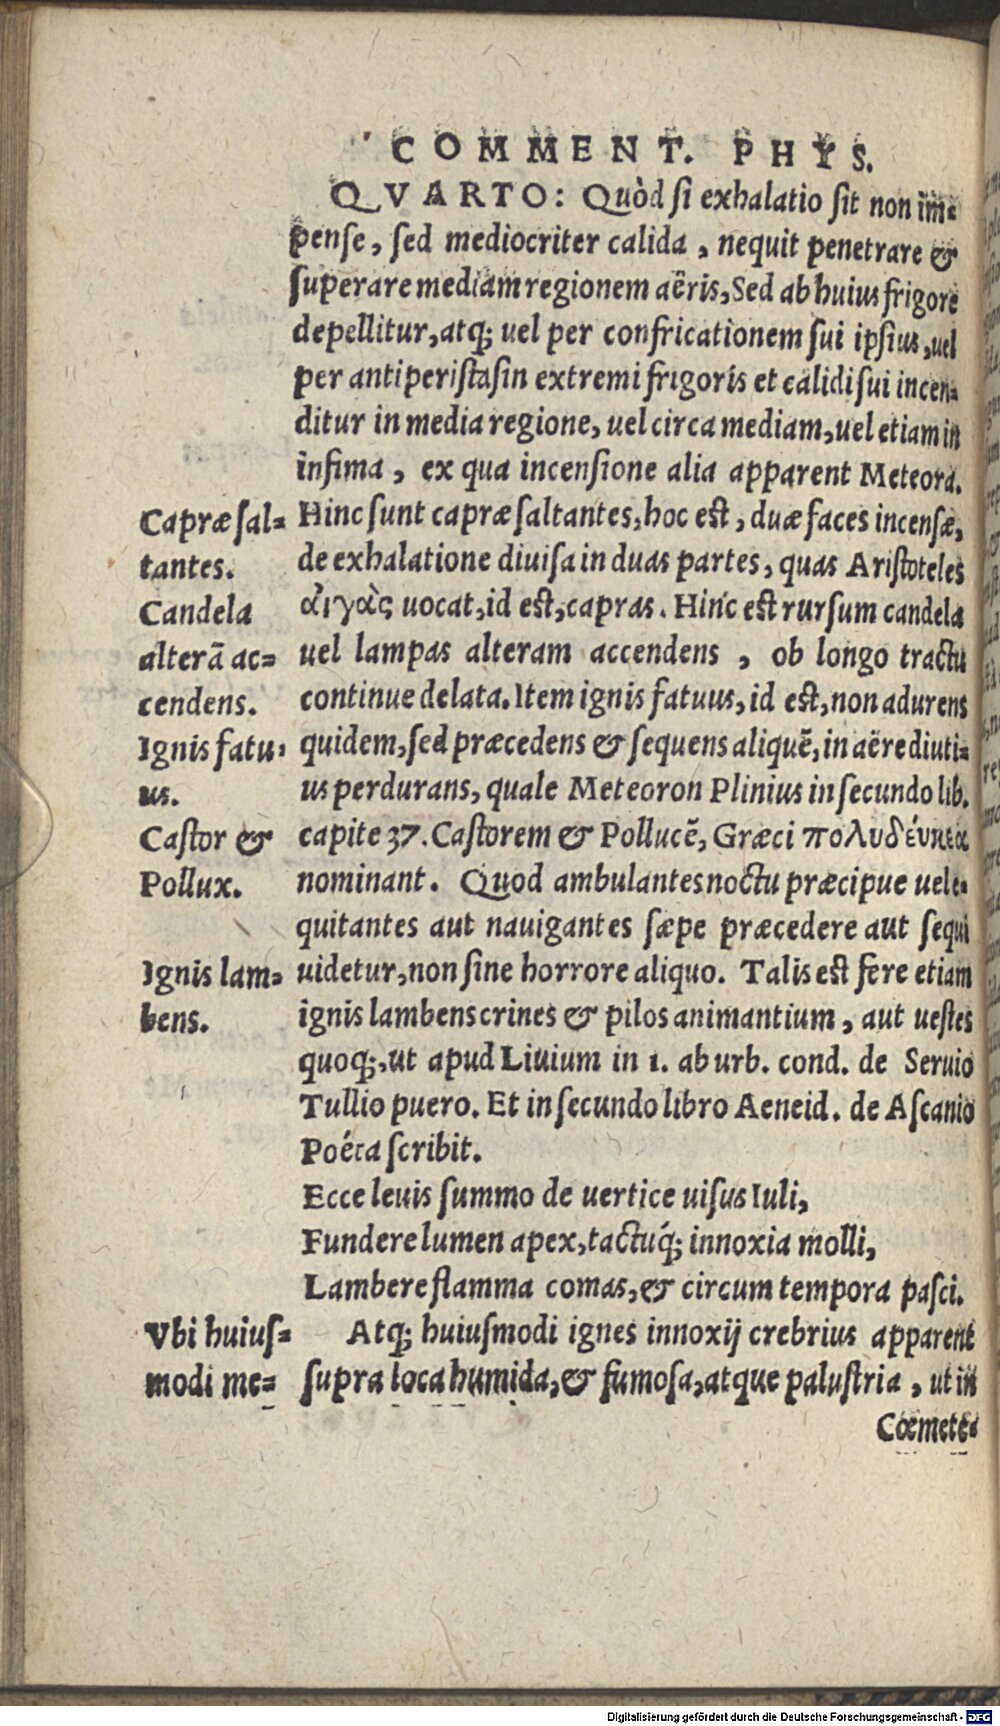 COMMENT. PHYS.
QVARTO: Quòd si exhalatio sit non im-
pense, sed mediocriter calida, nequit penetrare &
superare mediam regionem aëris, Sed ab huius frigore
depellitur, atq; uel per confricationem sui ipsius, uel
per antiperistasin extremi frigoris et calidi sui incen-
ditur in media regione, uel circa mediam, uel etiam in
infima, ex qua incensione alia apparent Meteora.
Hinc sunt capræ saltantes, hoc est, duæ faces incensæ,
de exhalatione diuisa in duas partes, quas Aristoteles
ἀιγὰς uocat, id est, capras. Hinc est rursum candela
uel lampas alteram accendens, ob longo tractu
continue delata. Item ignis fatuus, id est, non adurens
quidem, sed præcedens & sequens aliquē, in aëre diuti-
us perdurans, quale Meteoron Plinius in secundo lib.
capite 37. Castorem & Pollucē, Græci πολυδέυκεα
nominant. Quod ambulantes noctu præcipue uel e-
quitantes aut nauigantes sæpe præcedere aut sequi
uidetur, non sine horrore aliquo. Talis est fere etiam
ignis lambens crines & pilos animantium, aut uestes
quoq;, ut apud Liuium in 1. ab urb. cond. de Seruio
Tullio puero. Et in secundo libro Aeneid. de Ascanio
Poéta scribit.
Ecce leuis summo de uertice uisus Iuli,
Fundere lumen apex, tactuq́; innoxia molli,
Lambere flamma comas, & circum tempora pasci.
Atq; huiusmodi ignes innoxij crebrius apparent
supra loca humida, & fumosa, atque palustria, ut in
Cœmete-
Capræ sal-
tantes.
Candela
alterā ac-
cendens.
Ignis fatu-
us.
Castor &
Pollux.
Ignis lam-
bens.
Vbi huius-
modi me-
Digitalisierung gefördert durch die Deutsche Forschungsgemeinschaft - DFG